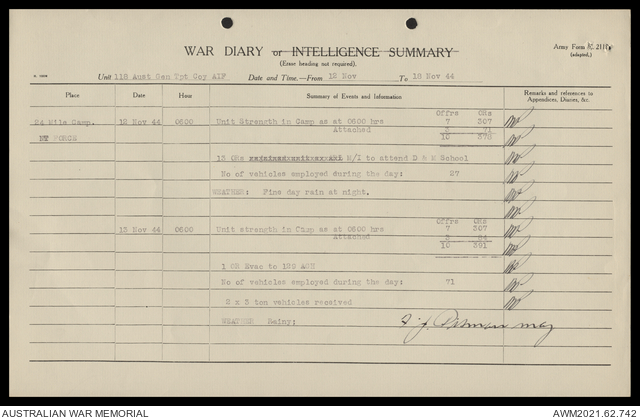 WAR DIARY or INTELLIGENCE SUMMARY
(Erase heading not required).
Army Form
(adapted.)
Unit 118 Aust Gen Tpt Coy AIF Date and Time.—From 12 Nov To 18 Nov 44
Place Date Hour Summary of Events and Information Remarks and references to Appendices, Diaries, &c.
Offrs ORs
Mile Camp. 12 Nov 44 0600 Unit Strength in Camp as at 0600 hrs 7 307
FORCE Attached 3 71
10 378
13 ORs M/I to attend D & M School
No of vehicles employed during the day: 27
WEATHER: Fine day rain at night.
Offrs ORs
13 Nov 44 0600 Unit strength in Camp as at 0600 hrs 7 307
Attached 3 84
10 391
1 OR Evac to
No of vehicles employed during the day: 71
2 x 3 ton vehicles received
WEATHER Rainy:
maj
AUSTRALIAN WAR MEMORIAL AWM2021.62.742